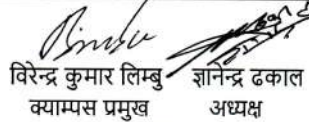 विरेन्द्र कुमार लिम्बु ज्ञानेन्द्र ढकाल
क्याम्पस प्रमुख अध्यक्ष